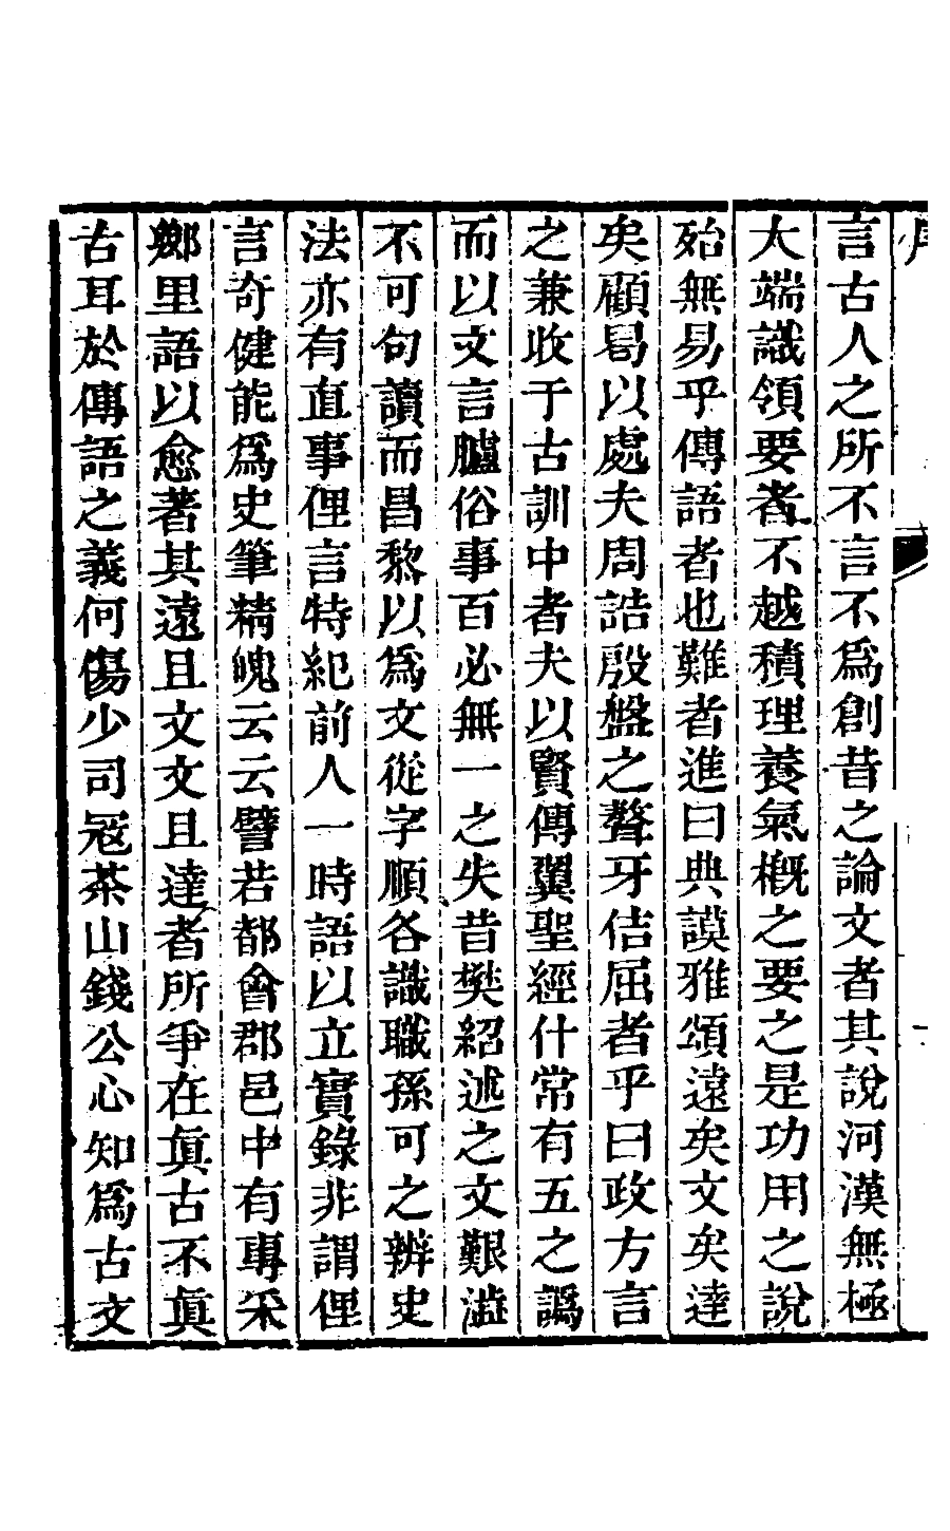 言古人之所不言不爲創昔之論文者其說河漢無極
大端識領要者不越積理養氣槪之要之是功用之說
殆無易乎傳語者也難者進曰典謨雅頌遠矣文矣達
矣顧曷以處夫周誥殷盤之聱牙佶屈者乎曰政方言
之兼收于古訓中者夫以賢傳翼聖經什常有五之譌
而以文言臚俗事百必無一之失昔樊紹述之文艱澁
不可句讀而昌黎以爲文從字順各識職孫可之辨史
法亦有直事俚言特紀前人一時語以立實錄非謂俚
言奇健能爲史筆精魄云云譬若都會郡邑中有專采
鄉里語以愈著其遠且文文且達者所爭在眞古不眞
古耳於傳語之義何傷少司冦茶山錢公心知爲古文